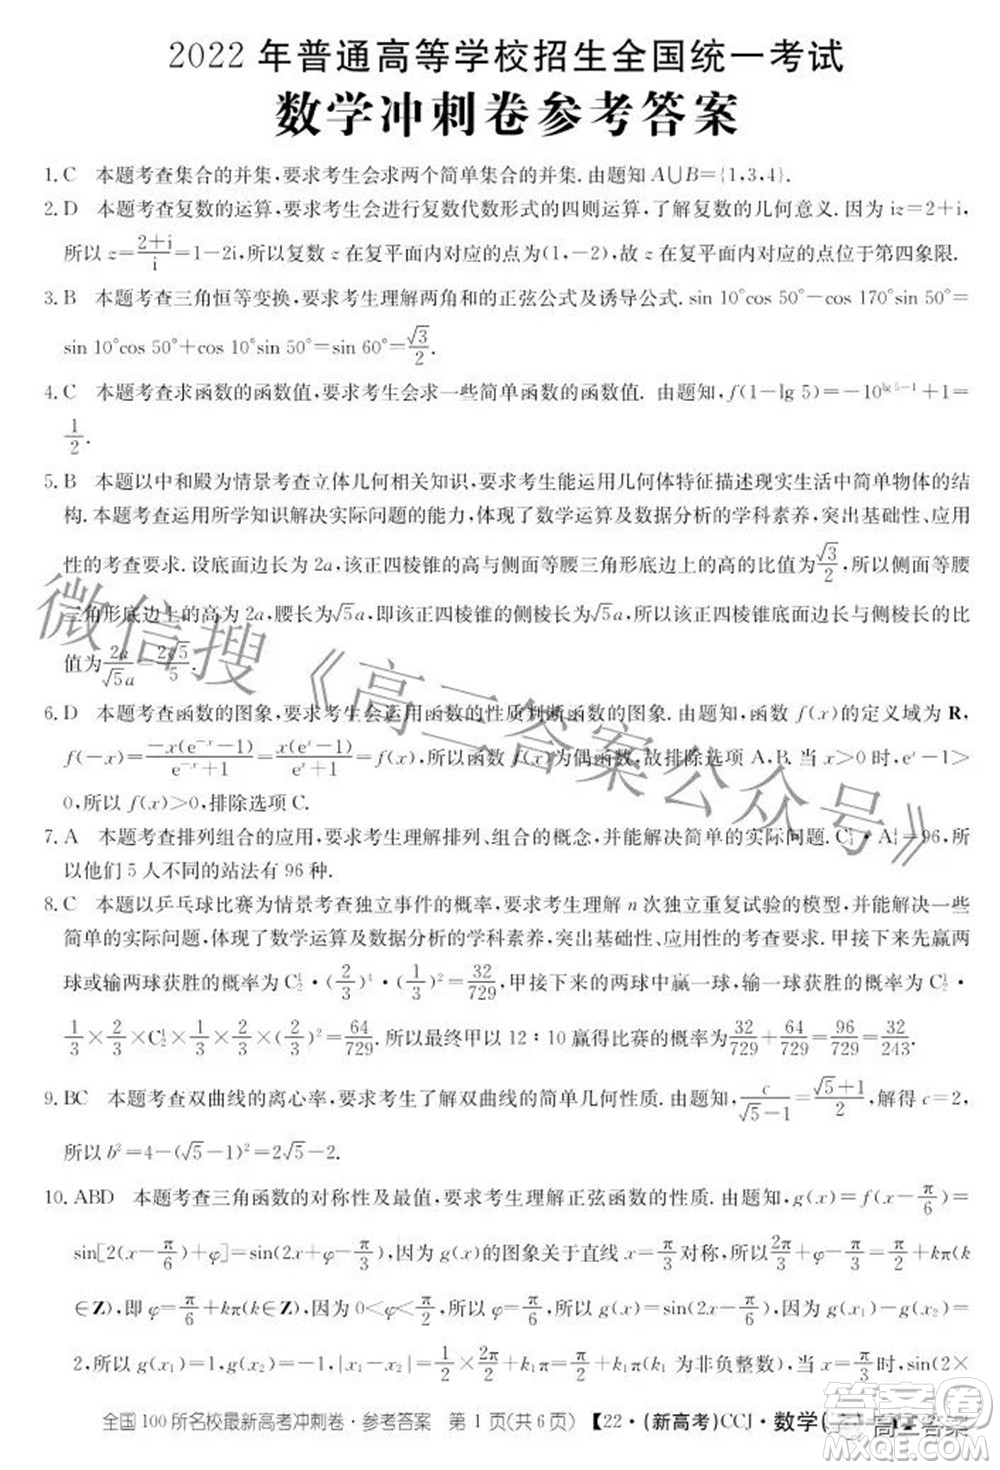 2022 年普通高等学校招生全国统一考试
数学冲刺卷参考答案
1. C 本题考查集合的并集,要求考生会求两个简单集合的并集. 由题知 A∪B={1,3,4}.
2. D 本题考查复数的运算,要求考生会进行复数代数形式的四则运算,了解复数的几何意义. 因为 iz=2+i,
所以 z=(2+i)/i=1-2i,所以复数 z 在复平面内对应的点为(1,-2),故 z 在复平面内对应的点位于第四象限.
3. B 本题考查三角恒等变换,要求考生理解两角和的正弦公式及诱导公式. sin 10°cos 50°-cos 170°sin 50°=
sin 10°cos 50°+cos 10°sin 50°=sin 60°=√3/2.
4. C 本题考查求函数的函数值,要求考生会求一些简单函数的函数值. 由题知,f(1-lg 5)=-10^(lg 5-1)+1=
1/2.
5. B 本题以中和殿为情景考查立体几何相关知识,要求考生能运用几何体特征描述现实生活中简单物体的结
构. 本题考查运用所学知识解决实际问题的能力,体现了数学运算及数据分析的学科素养,突出基础性、应用
性的考查要求. 设底面棱长为 2a,该正四棱锥的高与侧面等腰三角形底边上的高的比值为√3/2,所以侧面等腰
三角形底边上的高为 2a,腰长为√5a,即该正四棱锥的侧棱长为√5a,所以该正四棱锥的底面边长与侧棱长的比
值为2a/(√5a)=2√5/5.
6. D 本题考查函数的图象,要求考生会运用函数的性质判断函数的图象. 由题知,函数 f(x)的定义域为 R,
f(-x)=-x(e^(-x)-1)/(e^(-x)+1)=x(e^x-1)/(e^x+1)=f(x),所以 f(x)为偶函数,故排除选项 A、B. 当 x>0 时,e^x-1>
0,所以 f(x)>0,排除选项 C.
7. A 本题考查排列组合的应用,要求考生理解排列、组合的概念,并能解决简单的实际问题. C₄¹·A₄⁴=96,所
以他们 5 人不同的站法有 96 种.
8. C 本题以乒乓球比赛为情景考查独立事件的概率,要求考生理解 n 次独立重复试验的模型,并能解决一些
简单的实际问题,体现了数学运算及数据分析的学科素养,突出基础性、应用性的考查要求. 甲接下来先赢两
球或输两球获胜的概率为 C₂¹·(2/3)⁴·(1/3)²=32/729,甲接下来的两球中赢一球,输一球获胜的概率为 C₂¹·
1/3×2/3×C₂¹×(2/3)³×(1/3)²=64/729. 所以最终甲以 12:10 赢得比赛的概率为32/729+64/729=96/729=32/243.
9. BC 本题考查双曲线的离心率,要求考生了解双曲线的简单几何性质. 由题知,c/(√5-1)=(√5+1)/2,解得 c=2,
所以 b²=4-(√5-1)²=2√5-2.
10. ABD 本题考查三角函数的对称性及最值,要求考生理解正弦函数的性质. 由题知,g(x)=f(x-π/6)=
sin[2(x-π/6)+φ],因为 g(x)的图象关于直线 x=π/3对称,所以2×π/3+φ-π/3=π/2+kπ(k
∈Z),即 φ=π/6+kπ(k∈Z),因为 0<φ<π/2,所以 φ=π/6,所以 g(x)=sin(2x-π/6). 若 g(x₁)-g(x₂)=
2,所以 g(x₁)=1,g(x₂)=-1,|x₁-x₂|=1/2×2π/2+k₁π=π/2+k₁π(k₁ 为非负整数). 当 x=π/3时,sin(2x-
全国 100 所名校最新高考冲刺卷·参考答案 第 1 页(共 6 页) 【22·(新高考)CCJ·数学(
微信搜《高三答案公众号》
高三答案
答案圈
MXQE.COM